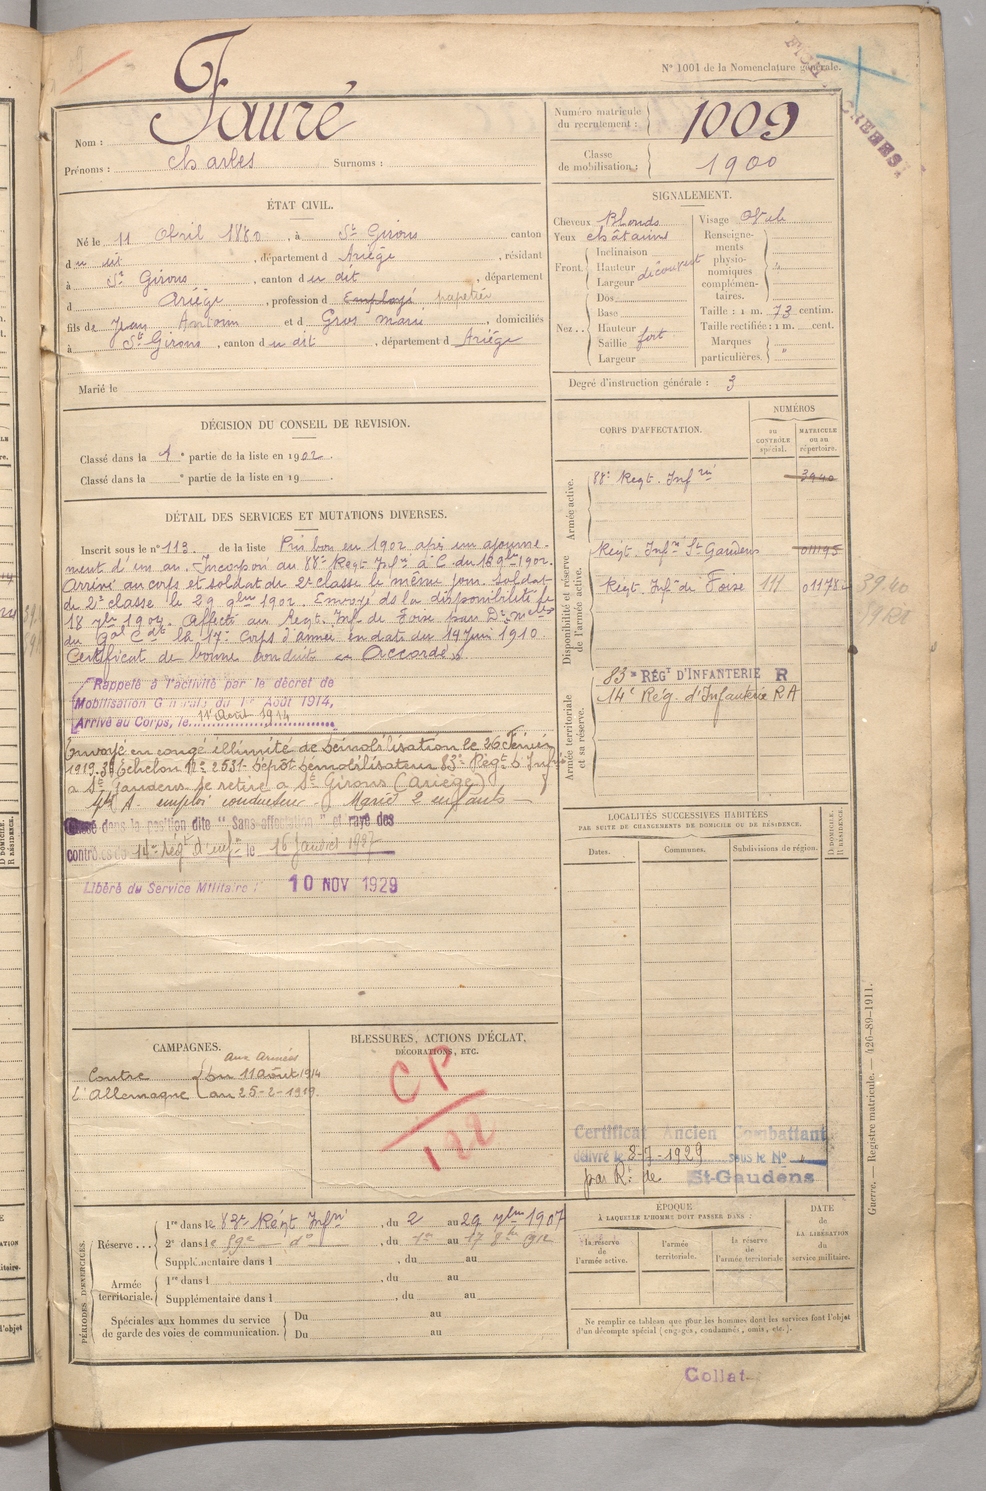 N° 1001 de la Nomenclature générale.
Nom : Fauré
Prénoms : Charles Surnoms :
Numéro matricule du recrutement : 1009
Classe de mobilisation : 1900
ÉTAT CIVIL.
Né le 11 Avril 1880, à St Girons canton
du dit, département d Ariège, résidant
à St Girons, canton du dit, département
d Ariège, profession d employé papetier
fils de Jean Antoin et d Gros marie, domiciliés
à St Girons, canton du dit, département d Ariège
Marié le
SIGNALEMENT.
Cheveux Blonds
Yeux châtains
Front. Inclinaison
Hauteur découvert
Largeur
Nez.. Dos
Base
Hauteur
Saillie fort
Largeur
Visage Ovale
Renseignements physionomiques complémentaires.
Taille : 1 m. 73 centim.
Taille rectifiée : 1 m. cent.
Marques particulières. "
Degré d'instruction générale : 3
DÉCISION DU CONSEIL DE REVISION.
Classé dans la 1e partie de la liste en 1902.
Classé dans la e partie de la liste en 19
CORPS D'AFFECTATION.
NUMÉROS
au CONTRÔLE spécial.
MATRICULE ou au répertoire.
Armée active.
88e Regt. Infrie 3940
Disponibilité et réserve de l'armée active.
Regt. Infie St Gaudens 011195
Regt. Infie de Foise 111 01178
3940
Armée territoriale et sa réserve.
83e RÉGT D'INFANTERIE R
14e Rég. d'Infanterie R A
DÉTAIL DES SERVICES ET MUTATIONS DIVERSES.
Inscrit sous le n° 113 de la liste Pris bon en 1902 après un ajourne-
ment d'un an. Incorporé au 88e Regt Infie à C. du 16 9bre 1902.
Arrivé au corps et soldat de 2e classe le même jour. Soldat
de 2e classe le 29 9bre 1902. Envoyé ds la disponibilité le
18 7bre 1904. Affecté au Regt. Infie de Foise par Don nelle
du Gal Cdt le 17e Corps d'armée en date du 14 Juin 1910.
Certificat de bonne conduite "Accordé".
Rappelé à l'activité par le décret de
Mobilisation Générale du 1er Août 1914,
Arrivé au Corps, le 11 Août 1914
Envoyé en congé illimité de démobilisation le 26 Février
1919. 3e Echelon N° 2531. Dépôt démobilisateur 83e Régt d'Infie
à St Gaudens se retire à St Girons (Ariège)
emploi conducteur - Marié 2 enfants -
Classé dans la position dite "Sans affectation" et rayé des
contrôles du 14e Régt d'infie le 16 Janvier 1927
Libéré du Service Militaire : 10 NOV 1929
LOCALITÉS SUCCESSIVES HABITÉES
PAR SUITE DE CHANGEMENTS DE DOMICILE OU DE RÉSIDENCE.
Dates.
Communes.
Subdivisions de région.
D DOMICILE.
R RÉSIDENCE.
CAMPAGNES.
aux Armées
Contre du 11 Août 1914
L'Allemagne au 25-2-1919.
BLESSURES, ACTIONS D'ÉCLAT,
DÉCORATIONS, ETC.
CP
122
Certificat Ancien Combattant
délivré le 8-7-1929 sous le N°
par R: de St-Gaudens
PÉRIODES D'EXERCICES.
Réserve... 1re dans le 83e Régt Infrie, du 2 au 29 7bre 1907
2e dans le 59e do, du 1er au 17 8bre 1912
Supplémentaire dans l, du au
Armée territoriale. 1re dans l, du au
Supplémentaire dans l, du au
Spéciales aux hommes du service de garde des voies de communication. Du au
Du au
ÉPOQUE
À LAQUELLE L'HOMME DOIT PASSER DANS :
la réserve de l'armée active.
l'armée territoriale.
la réserve de l'armée territoriale
DATE de LA LIBÉRATION du service militaire.
Ne remplir ce tableau que pour les hommes dont les services font l'objet
d'un décompte spécial (engagés, condamnés, omis, etc.).
Guerre. — Registre matricule. — 426-89-1911.
Collat